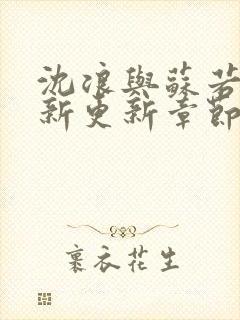 沈浪與蘇若
新更新章節
裹衣花生